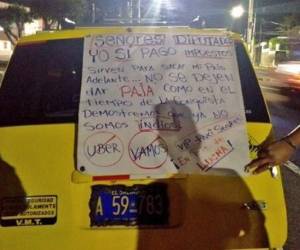 SEÑORES DIPUTADOS
YO SI PAGO IMPUESTOS
SIRVEN PARA SACAR MI PAIS
ADELANTE... NO SE DEJEN
DAR PAJA COMO EN EL
TIEMPO DE LA CONQUISTA
DEMOSTREMOS QUE YA NO
SOMOS INDIOS
UBER VAMOS VIP
EN
SEGURIDAD
AUTORIZADOS
V.M.T.
EL SALVADOR
A 59 783